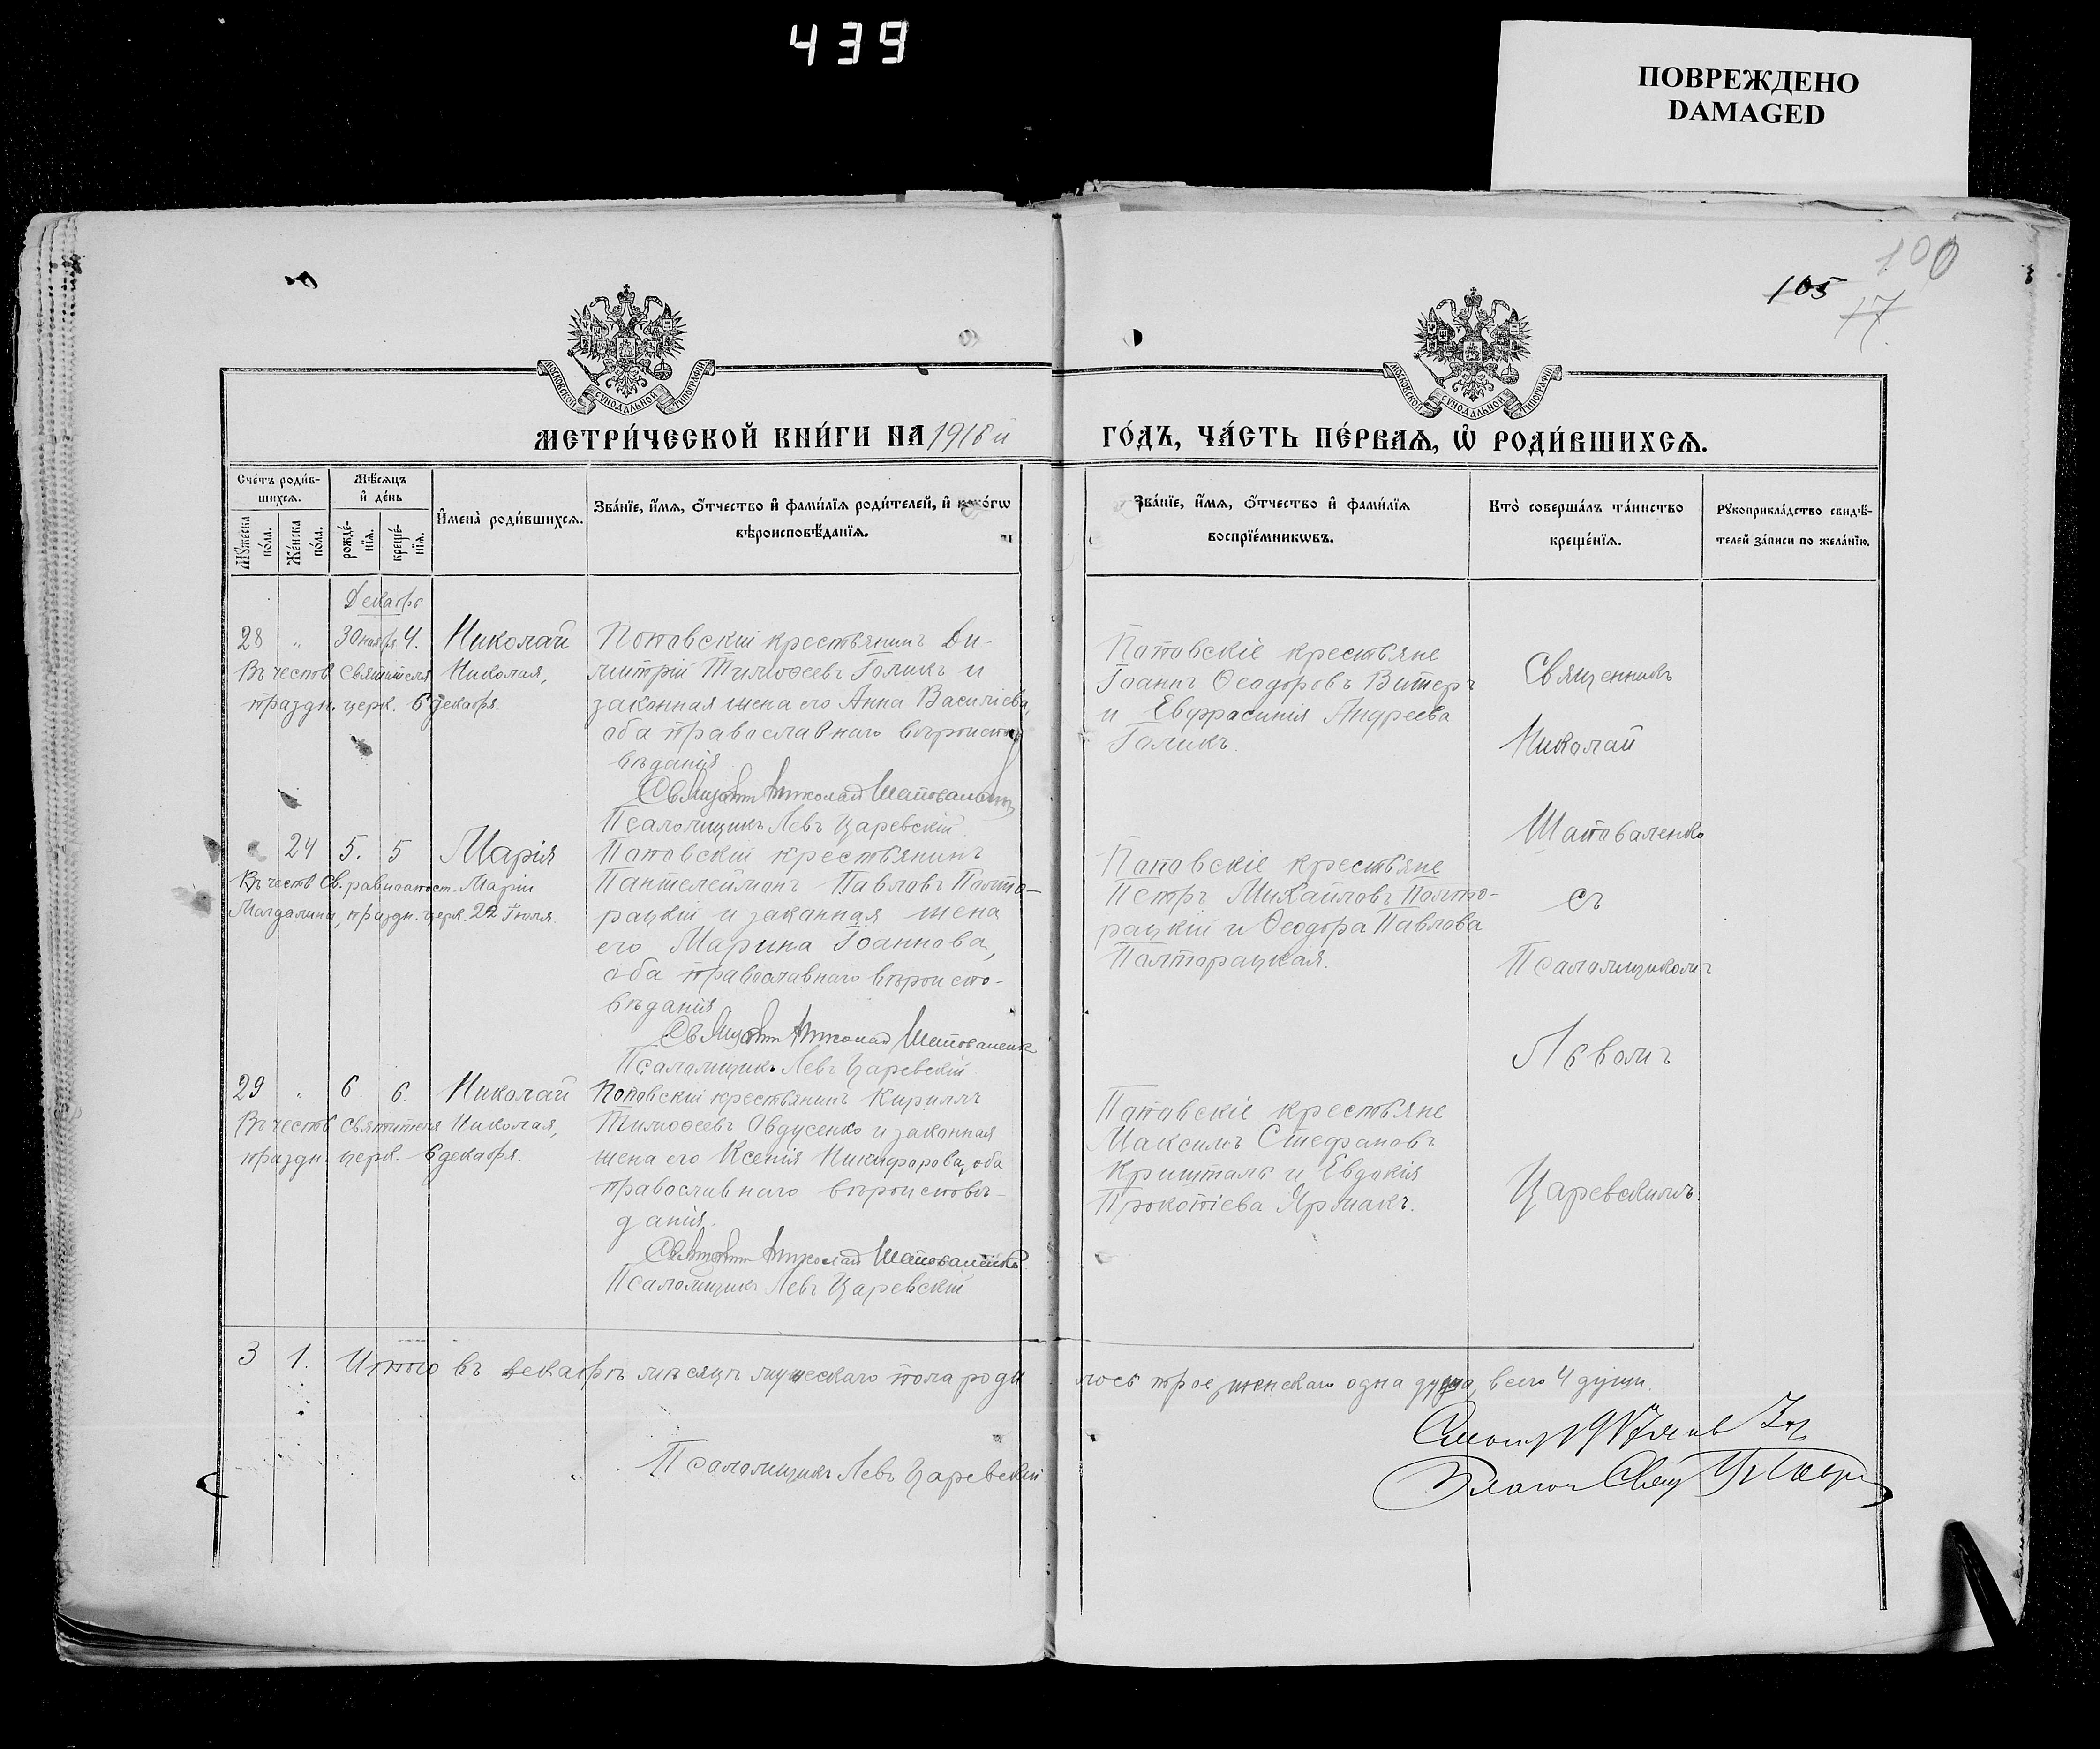 439
ПОВРЕЖДЕНО
DAMAGED
100
105
17
МОСКОВСКОЙ СѴНОДАЛЬНОЙ ТИПОГРАФІИ
МОСКОВСКОЙ СѴНОДАЛЬНОЙ ТИПОГРАФІИ
МЕТРИ́ЧЕСКОЙ КНИ́ГИ НА 1916й
ГО́ДЪ, ЧА́СТЬ ПЕ́РВАѦ, Ѡ҆ РОДИ́ВШИХСѦ.
Сче́тъ роди́в-
шихсѧ.
Мꙋ́жеска по́ла.
Же́нска по́ла.
Мѣ́сѧцъ
и҆ де́нь
рожде́-
нїѧ.
креще́-
нїѧ.
И҆мена̀ роди́вшихсѧ.
Зва́нїе, и҆́мѧ, ѻ҆́тчество и҆ фами́лїѧ роди́телей, и҆ како́гѡ
вѣроисповѣ́данїѧ.
Зва́нїе, и҆́мѧ, ѻ҆́тчество и҆ фами́лїѧ
воспрїе́мникѡвъ.
Кто̀ соверша́лъ та́инство
креще́нїѧ.
Рꙋкоприкла́дство свидѣ́-
телей за́писи по жела́нїю.
Декабрь
28 " 30 ноября 4. Николай
Въ честь Святителя Николая,
праздн. церк. 6 декабря.
Попавскій крестьянинъ Ди-
митрій Тимоѳеевъ Голикъ и
законная жена его Анна Василіева,
оба православнаго вѣроиспо-
вѣданія
Священникъ Николай Шаповаленко
Псаломщикъ Левъ Царевскій.
Попавскіе крестьяне
Іоаннъ Ѳеодоровъ Витеръ
и Евфрасинія Андреева
Голикъ.
Священникъ
Николай
Шаповаленко
съ
Псаломщикомъ
Львомъ
Царевскимъ.
24 5. 5 Марія
Въ честь Св. равноапост. Маріи
Магдалины, праздн. церк. 22 Іюля.
Попавскій крестьянинъ
Пантелеймонъ Павловъ Полто-
рацкій и законная жена
его Марина Іоаннова,
оба православнаго вѣроиспо-
вѣданія
Священникъ Николай Шаповаленко
Псаломщикъ Левъ Царевскій.
Попавскіе крестьяне
Петръ Михайловъ Полто-
рацкій и Ѳеодора Павлова
Полторацкая.
29 " 6. 6. Николай
Въ честь Святителя Николая,
праздн. церк. 6 декабря.
Попавскій крестьянинъ Кириллъ
Тимоѳеевъ Овдусенко и законная
жена его Ксенія Никифорова, оба
православнаго вѣроисповѣ-
данія.
Священникъ Николай Шаповаленко
Псаломщикъ Левъ Царевскій
Попавскіе крестьяне
Максимъ Стефановъ
Кришталь и Евдокія
Прокопіева Ярмакъ.
3 1. Итого въ декабрѣ мѣсяцѣ мужескаго пола родилось трое, женскаго одна душа, всего 4 души.
Псаломщикъ Левъ Царевскій